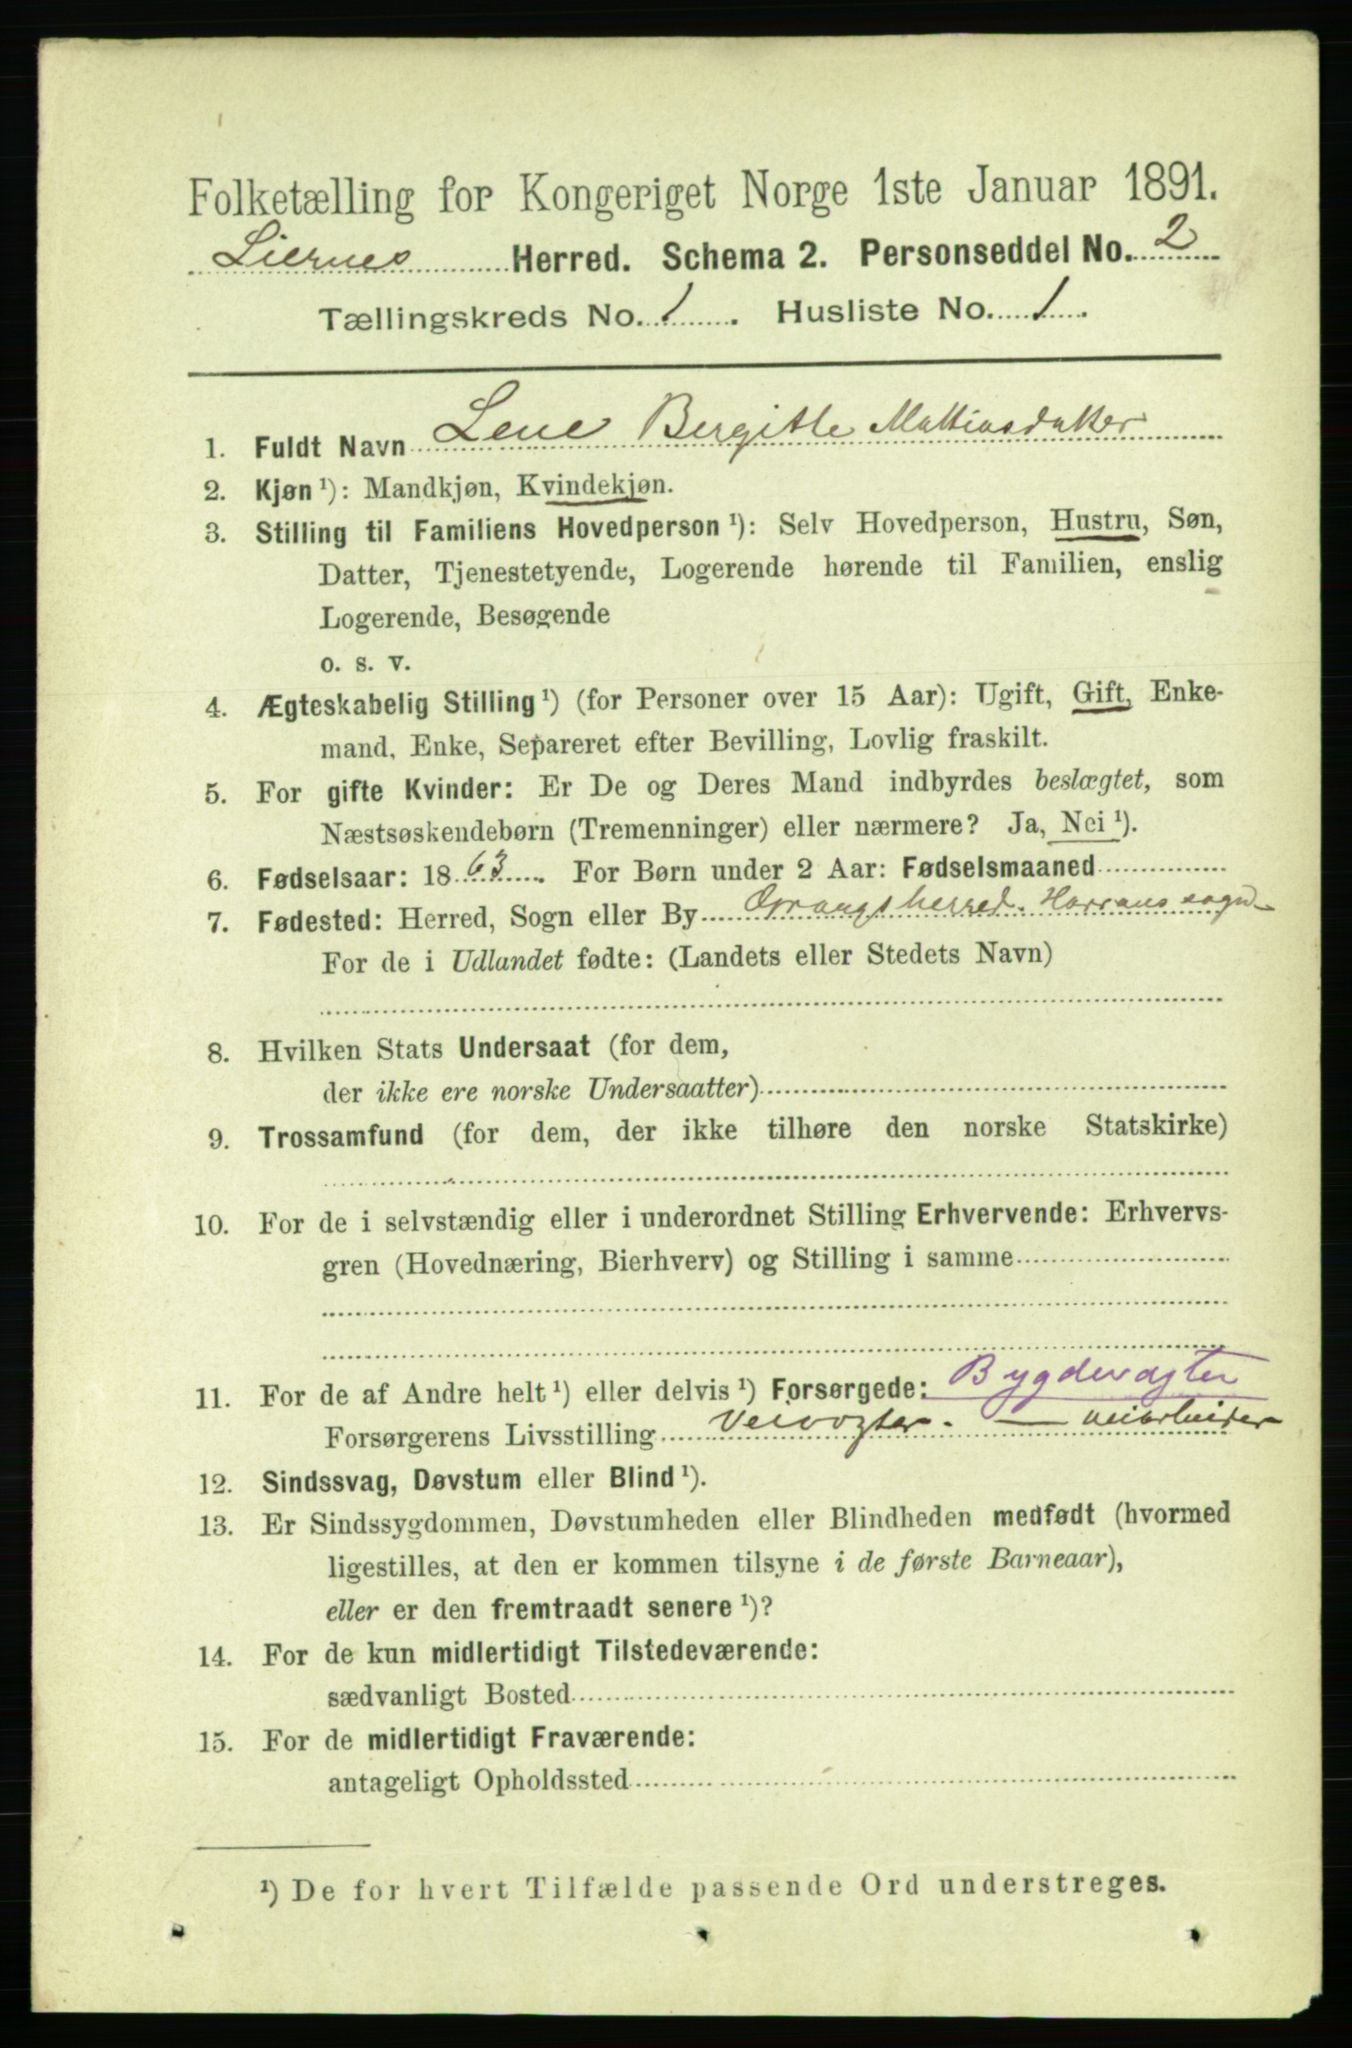 Folketælling for Kongeriget Norge 1ste Januar 1891.
Liernes Herred. Schema 2. Personseddel No. 2
Tællingskreds No. 1. Husliste No. 1.
1. Fuldt Navn Lene Bergitte Mattiasdatter
2. Kjøn ¹): Mandkjøn, Kvindekjøn.
3. Stilling til Familiens Hovedperson ¹): Selv Hovedperson, Hustru, Søn,
Datter, Tjenestetyende, Logerende hørende til Familien, enslig
Logerende, Besøgende
o. s. v.
4. Ægteskabelig Stilling ¹) (for Personer over 15 Aar): Ugift, Gift, Enke-
mand, Enke, Separeret efter Bevilling, Lovlig fraskilt.
5. For gifte Kvinder: Er De og Deres Mand indbyrdes beslægtet, som
Næstsøskendebørn (Tremenninger) eller nærmere? Ja, Nei ¹).
6. Fødselsaar: 1863. For Børn under 2 Aar: Fødselsmaaned
7. Fødested: Herred, Sogn eller By herred. Harrans sogn
For de i Udlandet fødte: (Landets eller Stedets Navn)
8. Hvilken Stats Undersaat (for dem,
der ikke ere norske Undersaatter)
9. Trossamfund (for dem, der ikke tilhøre den norske Statskirke)
10. For de i selvstændig eller i underordnet Stilling Erhvervende: Erhvervs-
gren (Hovednæring, Bierhverv) og Stilling i samme
11. For de af Andre helt ¹) eller delvis ¹) Forsørgede: Bygdevagter
Forsørgerens Livsstilling Veivogter. — veiarbeider
12. Sindssvag, Døvstum eller Blind ¹).
13. Er Sindssygdommen, Døvstumheden eller Blindheden medfødt (hvormed
ligestilles, at den er kommen tilsyne i de første Barneaar),
eller er den fremtraadt senere ¹)?
14. For de kun midlertidigt Tilstedeværende:
sædvanligt Bosted
15. For de midlertidigt Fraværende:
antageligt Opholdssted
¹) De for hvert Tilfælde passende Ord understreges.